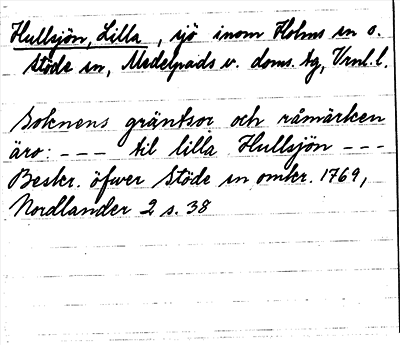 Hullsjön, Lilla, sjö inom Holms sn o.
Stöde sn, Medelpads v. doms. tg, Vrnl. l.
Soknens gräntsor och råmärken
äro: --- til lilla Hullsjön ---
Beskr. öfwer Stöde sn omkr. 1769,
Nordlander 2 s. 38